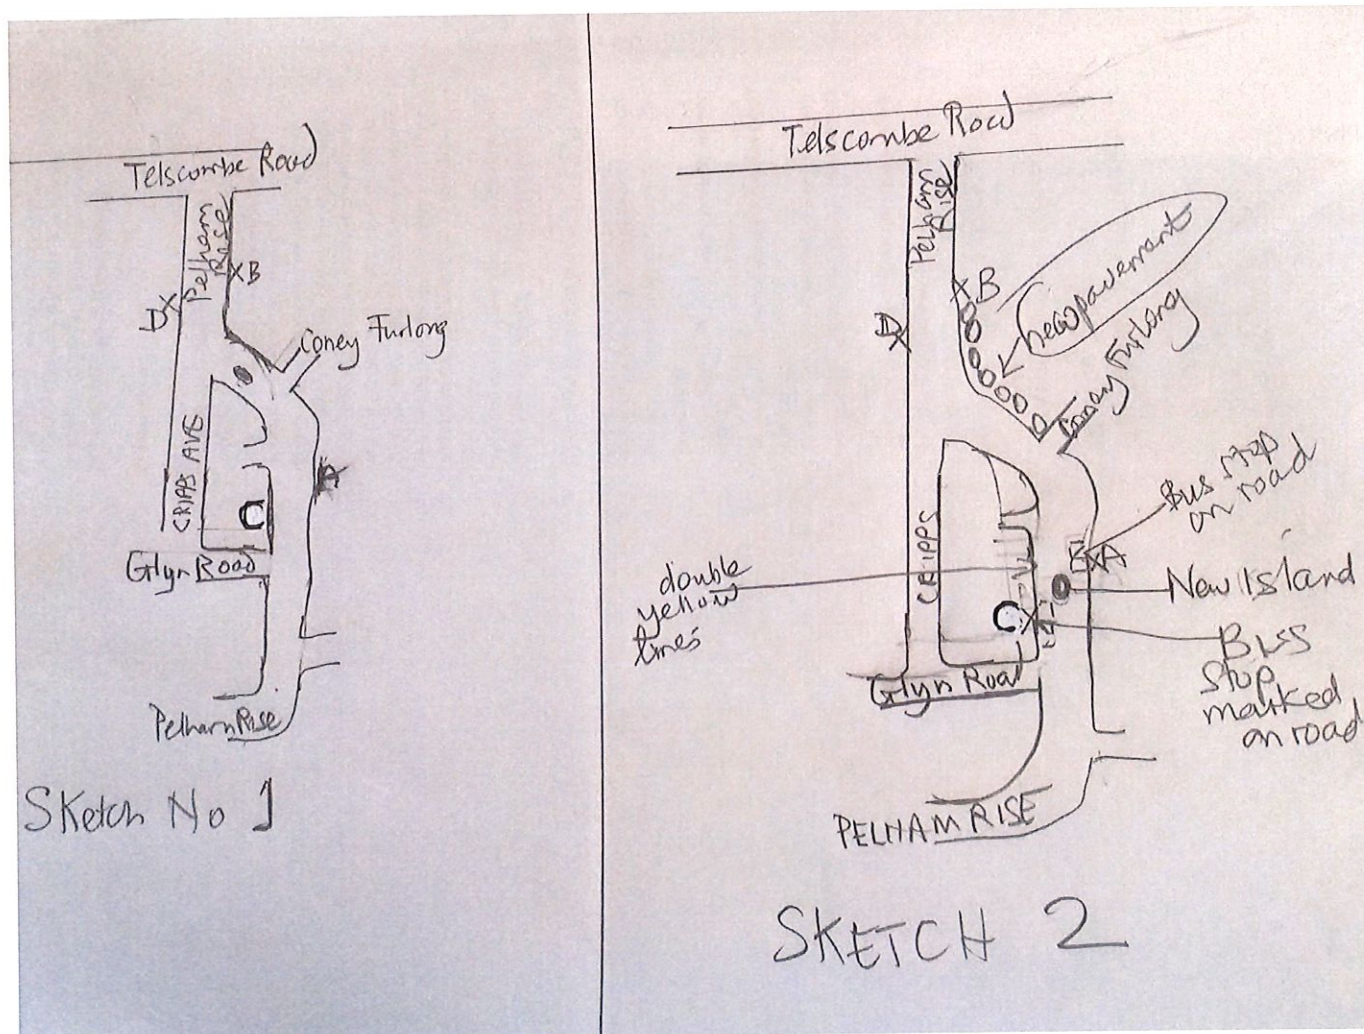 Telscombe Road
Pelham
Rise
B
D
Coney Furlong
CRIPPS AVE
A
C
Glyn Road
Pelham Rise
Sketch No 1
Telscombe Road
Pelham
Rise
B
new pavement
D
Coney Furlong
Bus stop
on road
CRIPPS
A
double
yellow
lines
New Island
C
Bus
stop
marked
on road
Glyn Road
PELHAM RISE
SKETCH 2